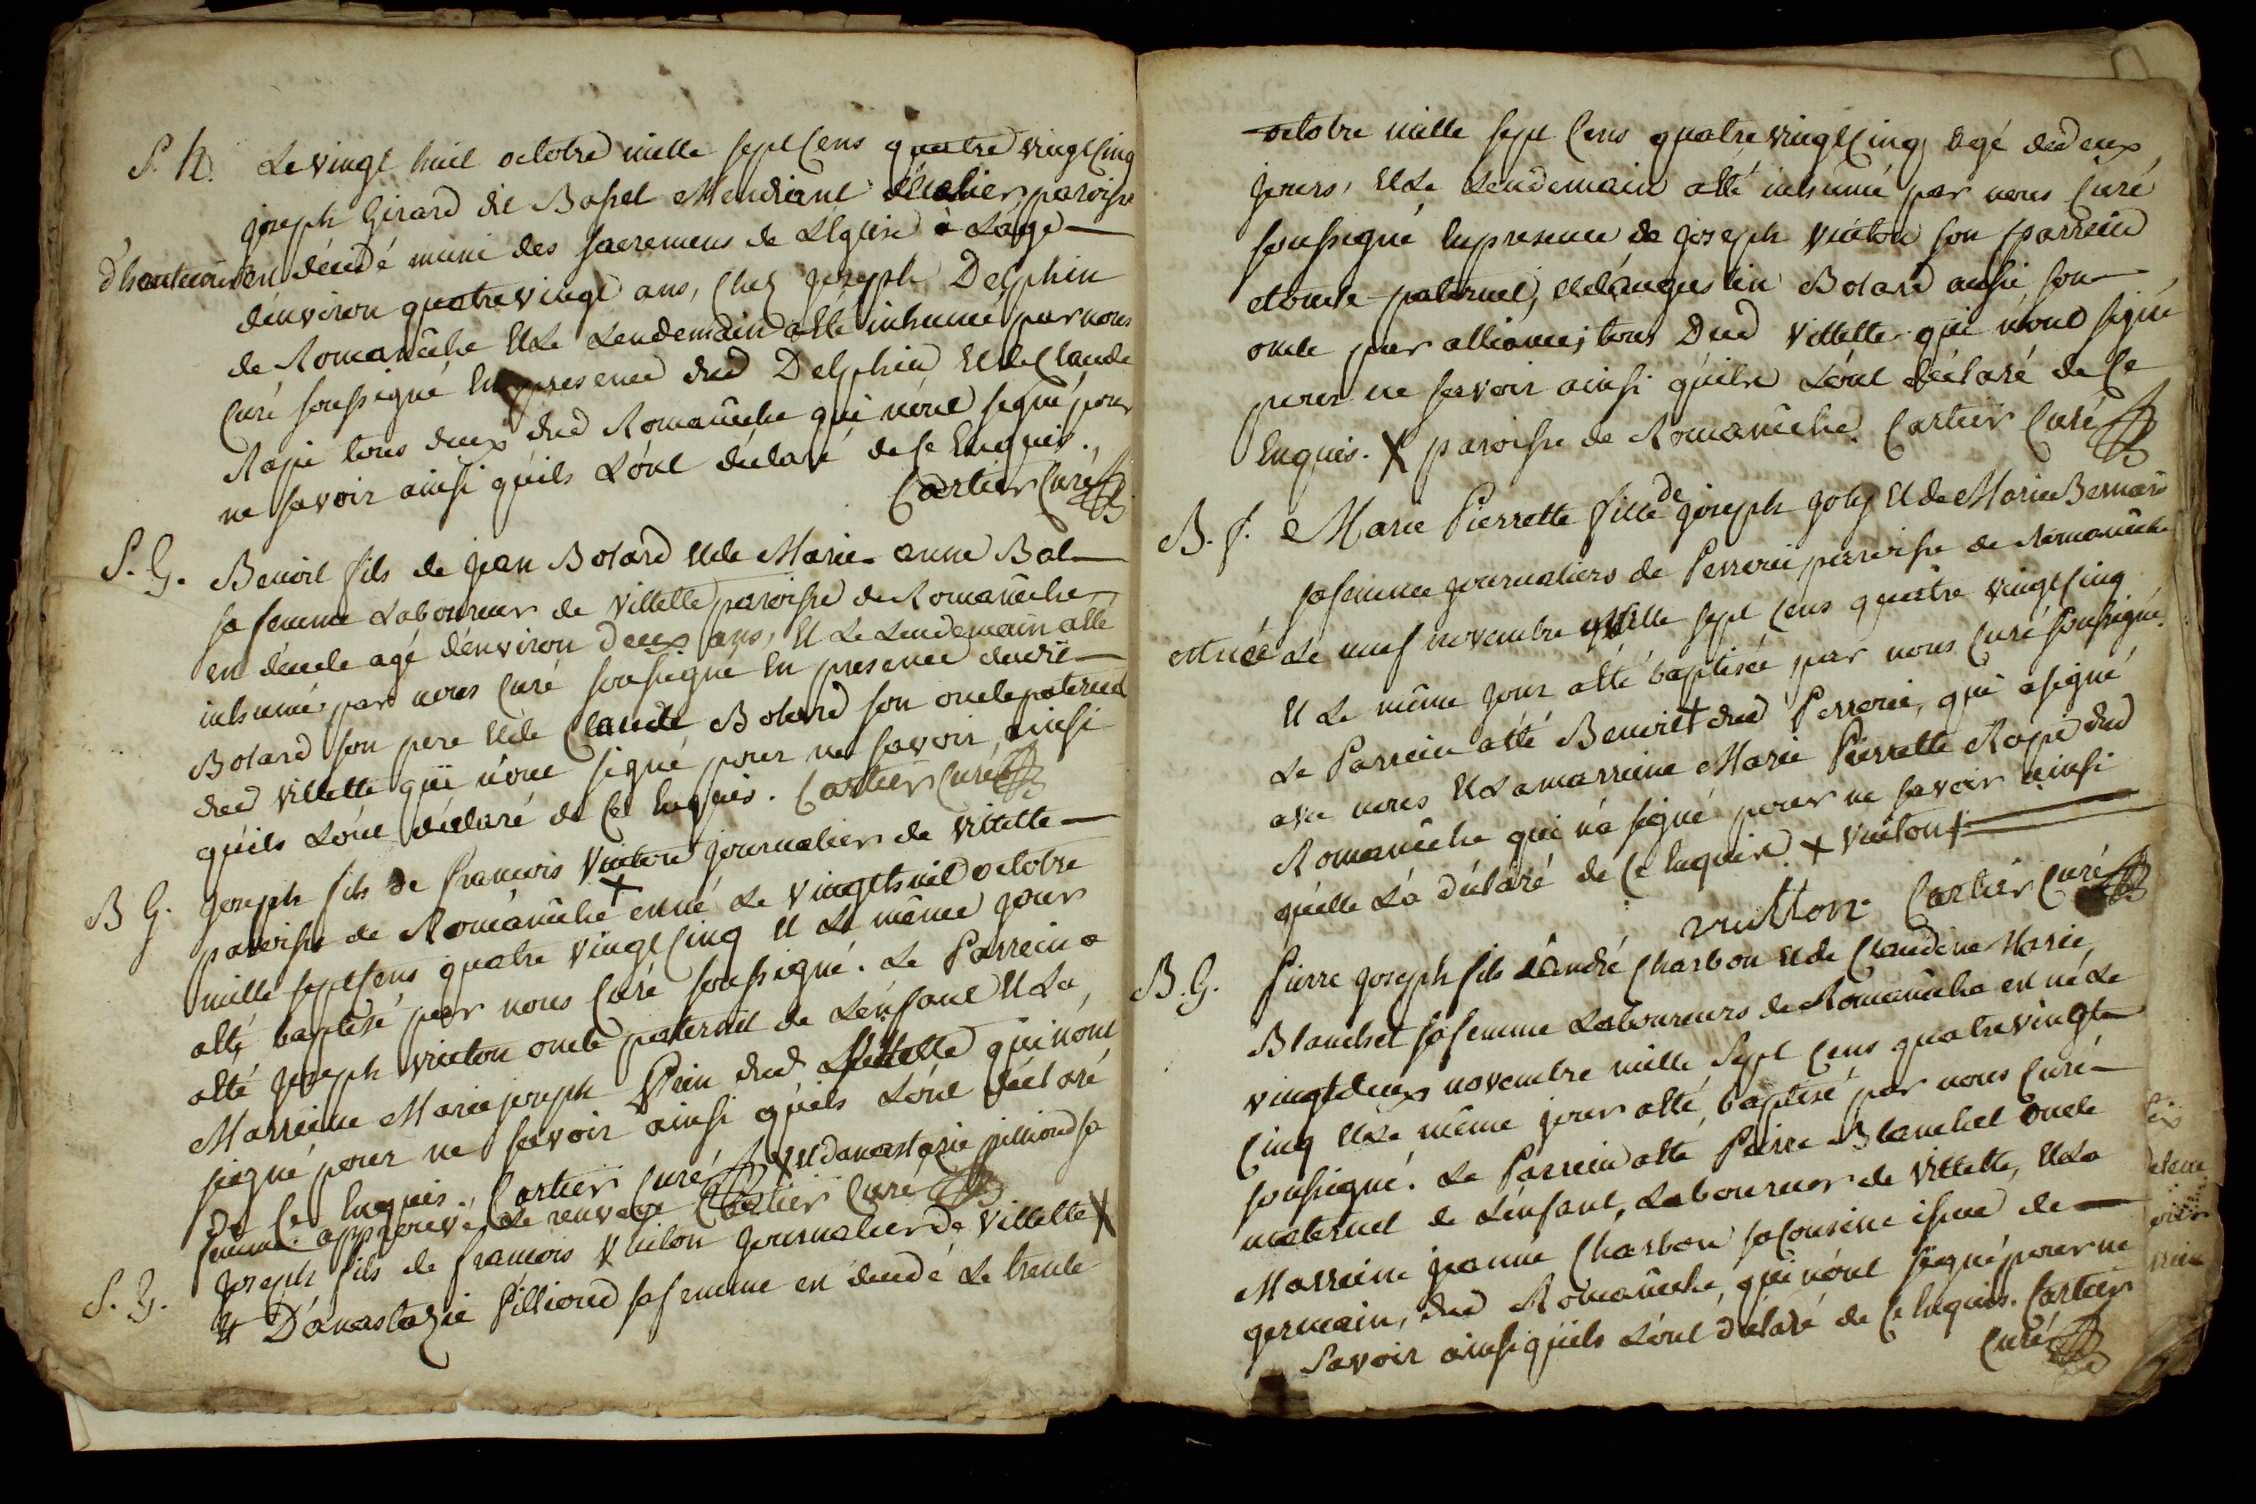 S. h. Le vingt huit octobre mille sept Cens quatre vingt Cinq
joseph Girard dit Bosset Mendiant paroisse
d'hauteville en décédé muni des sacremens de L'Eglise à L'age
d'environ quatre vingt ans, Chez joseph Delphin
de Romanêche et Le Lendemain a été inhumé par nous
Curé soussigné En presence dud Delphin et de Claude
Rape tous deux dud Romanêche qui n'ont signé pour
ne savoir ainsi qu'ils L'ont déclaré de ce Enquis.
Cartier Curé
S. G. Benoit fils de jean Botard et de Marie-anne Bal
sa femme Laboureur de Villette paroisse de Romanêche
en décédé agé d'environ deux ans, et Le Lendemain a été
inhumé par nous Curé soussigné En presence dudit
Botard son pere et de Claude Botard son oncle paternel
dud Villette qui n'ont signé pour ne savoir, ainsi
qu'ils L'ont déclaré de Ce Enquis. Cartier Curé
B G. joseph fils de francois Vuiton journalier de Villette
paroisse de Romanêche + en né Le Vingt huit octobre
mille sept Cens quatre vingt Cinq et Le même jour
a été baptisé par nous Curé soussigné. Le Parrein a
été joseph Vuiton oncle paternel de L'enfant et La
Marreine Marie joseph dud Villette qui n'ont
signé pour ne savoir ainsi qu'ils L'ont déclaré
de Ce Enquis. Cartier Curé X et danastazie pilliond sa
femme. approuvé Le renvoye Cartier Curé
S. G. joseph fils de francois Vuiton journalier de Villette X
et D'anastazie Pilliond sa femme en décédé Le trente
octobre mille sept Cens quatre vingt Cinq agé de deux
jours, et Le Lendemain a été inhumé par nous Curé
soussigné En presence de joseph Vuiton son parrein
et oncle paternel, et d'augustin Botard aussi son
oncle par alliance; tous Dud Villette qui n'ont signé
pour ne savoir ainsi qu'ils L'ont déclaré de Ce
Enquis. X paroisse de Romanêche. Cartier Curé
B. f. Marie Pierrette fille de joseph joly et de Marie Bernard
sa femme journaliers de Perrorie paroisse de Romanêche
et née Le neuf novembre Mille sept Cens quatre vingt Cinq
et Le même jour a été baptisée par nous Curé soussigné.
Le Parrein a été Benoit + dud Perrorie, qui a signé
avec nous et La marreine Marie Pierrette Rape dud
Romanêche qui n'a signé pour ne savoir ainsi
qu'elle L'a déclaré de Ce Enquise. + Vuiton +
vuitton Cartier Curé
B. G. Pierre joseph fils d'andré Charbon et de Claudine Marie
Blanchet sa femme Laboureurs de Romanêche en né Le
vingt deux novembre mille Sept Cens quatre vingt
Cinq et Le même jour a été baptisé par nous Curé
soussigné. Le Parrein a été Pierre Blanchet oncle
maternel de L'enfant, Laboureur de Villette, et La
Marreine jeanne Charbon sa Cousine issue de
germain, dud Romanêche, qui n'ont signé pour ne
Savoir ainsi qu'ils L'ont déclaré de Ce Enquis. Cartier
Curé